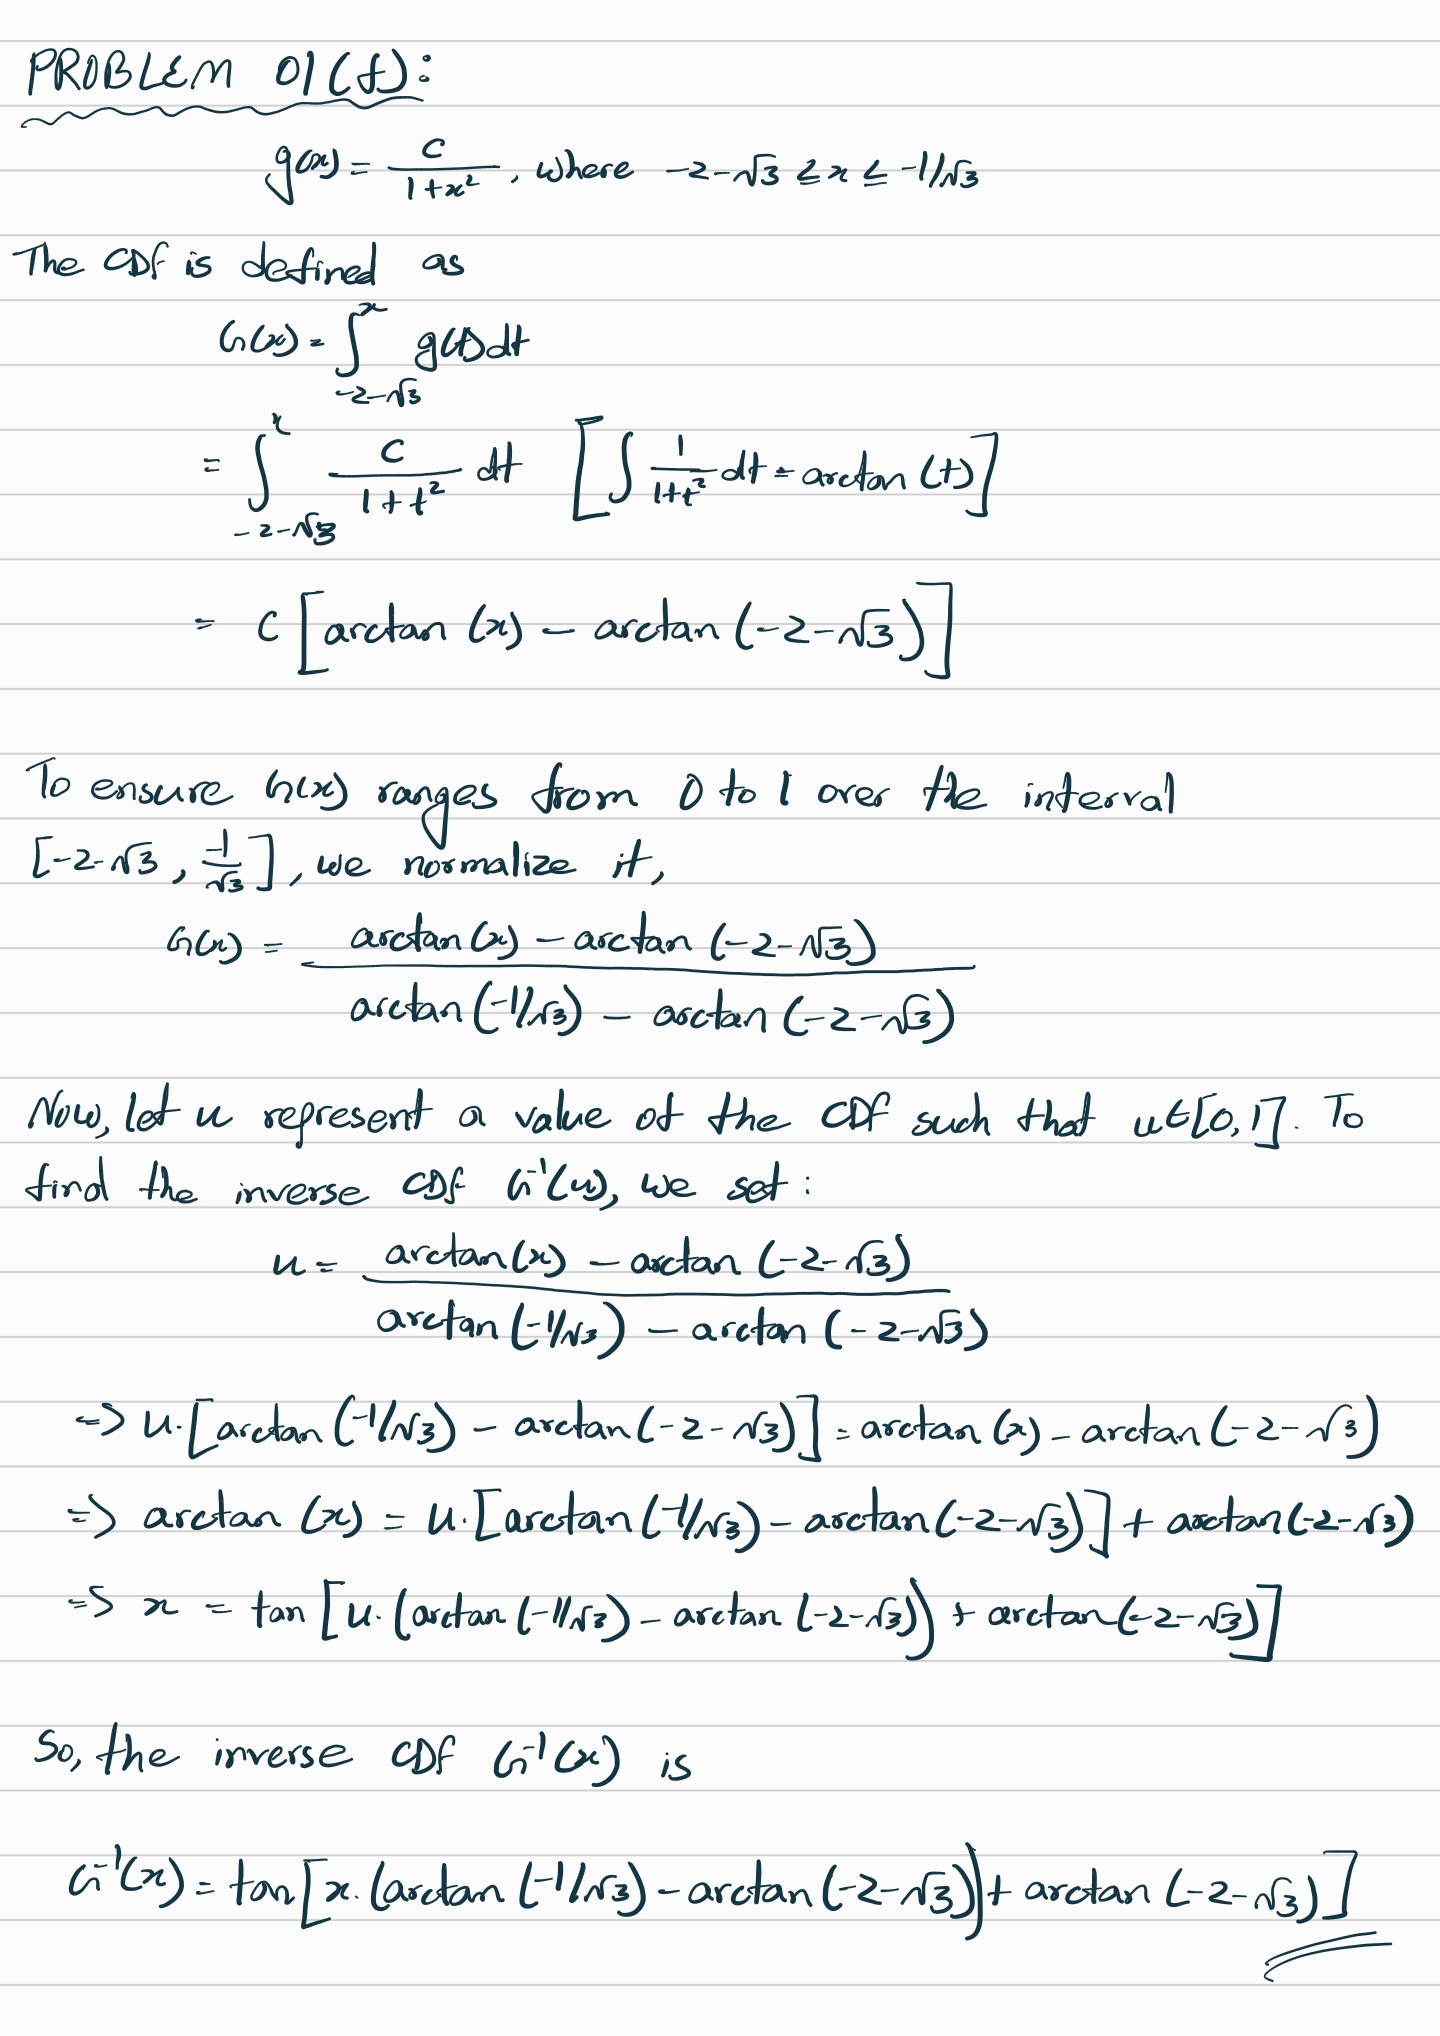 PROBLEM 01(f):
g(x) = c / (1+x²), where -2-√3 ≤ x ≤ -1/√3
The CDF is defined as
G(x) = ∫_{-2-√3}^{x} g(t)dt
= ∫_{-2-√3}^{x} c / (1+t²) dt [∫ 1/(1+t²) dt = arctan (t)]
= c [arctan (x) - arctan (-2-√3)]
To ensure G(x) ranges from 0 to 1 over the interval
[-2-√3, -1/√3], we normalize it,
G(x) = (arctan(x) - arctan (-2-√3)) / (arctan(-1/√3) - arctan (-2-√3))
Now, let u represent a value of the CDF such that u∈[0,1]. To
find the inverse CDF G⁻¹(u), we set:
u = (arctan(x) - arctan (-2-√3)) / (arctan(-1/√3) - arctan (-2-√3))
=> u.[arctan(-1/√3) - arctan(-2-√3)] = arctan (x) - arctan (-2-√3)
=> arctan (x) = u.[arctan(-1/√3) - arctan(-2-√3)] + arctan(-2-√3)
=> x = tan [u.(arctan(-1/√3) - arctan (-2-√3)) + arctan(-2-√3)]
So, the inverse CDF G⁻¹(x) is
G⁻¹(x) = tan[x.(arctan (-1/√3) - arctan(-2-√3)) + arctan (-2-√3)]